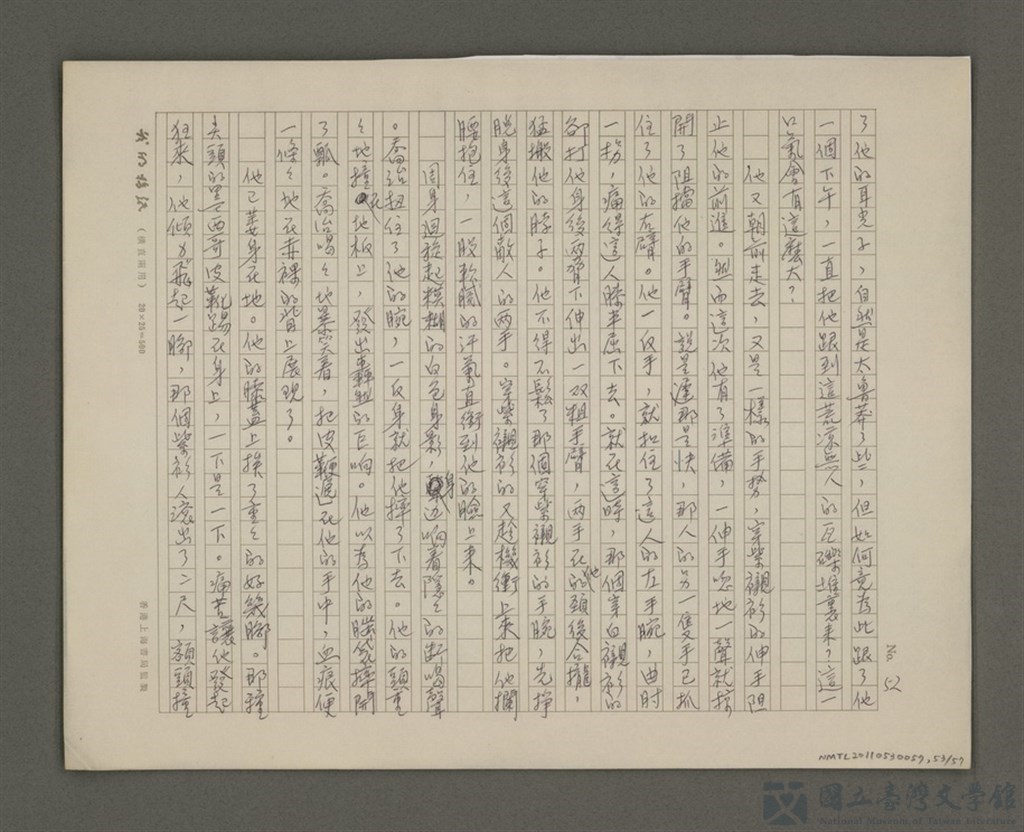 了他的耳光子，自然是太魯莽了些，但如何竟為此跟了他
一個下午，一直把他跟到這荒涼無人的瓦礫堆裏來？這一
口氣會有這麼大？
他又朝前走去，又是一樣的手勢，穿柴襯衫的伸手阻
止他的前進。然而這次他有了準備，一伸手啪地一聲就擋
開了阻擋他的手臂。說是遲那是快，那人的另一隻手已抓
住了他的左臂。他一反手，就扣住了這人的左手腕，曲肘
一拐，痛得這人膝半屈下去。就在這時，那個穿白襯衫的
卻打他身後兩脅下伸出一双粗手臂，兩手在他的頸後合攏，
猛搬他的脖子。他不得不鬆了那個穿柴襯衫的手腕，先掙
脫身後這個敵人的两手。穿柴襯衫的又趁機衝上來把他攔
腰抱住，一股軟膩的汗氣直衝到他的臉上來。
周身迴旋起糢糊的白色身影，身邊响着隱々的 喝聲
。喬治扭住了他的腕，一反身就把他摔了下去。他的頭重
々地撞在地板上，發出轟然的巨响。他以為他的腦袋摔開
了瓢。喬治嘿々地暴笑着，把皮鞭遞在他的手中，血痕便
一條々地在赤裸的背上展現了。
他已萎身在地。他的膝蓋上挨了重々的好幾腳。那種
尖頭的墨西哥皮靴踢在身上，一下是一下。痛苦讓他發起
狂來，他傾力飛起一腳，那個柴衫人滾出了二尺，額頭撞
我的稿紙
（橫直兩用） 20×25=500
香港上海書局監製
52
NMTL20110530059,53/57
國立臺灣文學館
National Museum of Taiwan Literature